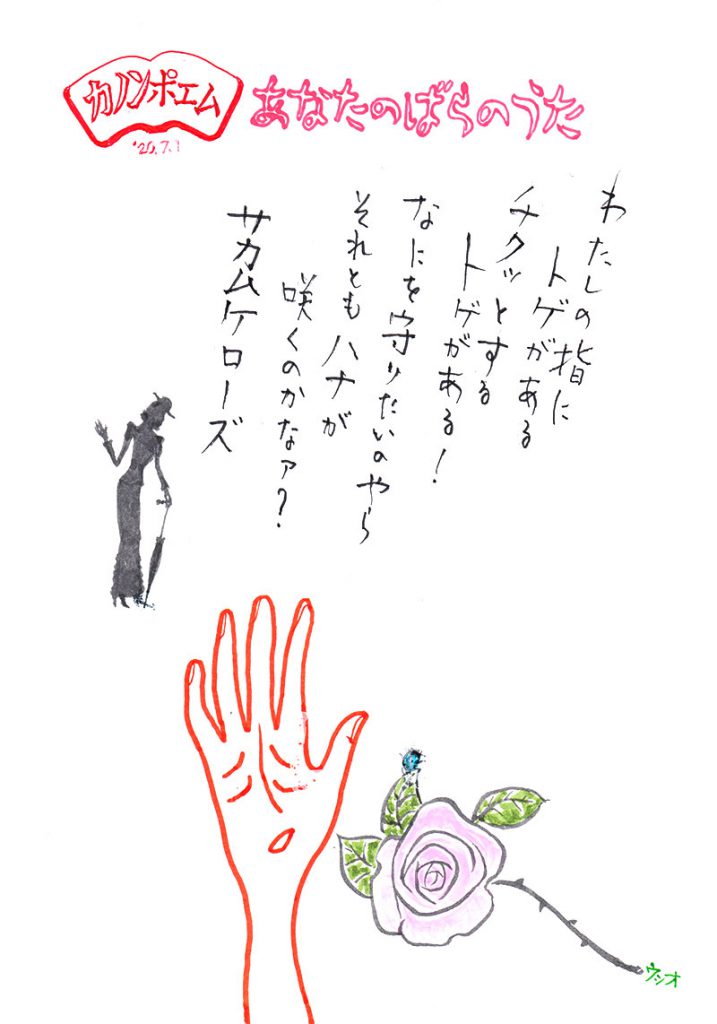 カノンポエム
'20.7.1
あなたのばらのうた
わたしの指に
トゲがある
チクッとする
トゲがある!
なにを守りたいのやら
それともハナが
咲くのかなァ?
サカムケローズ
ウシオ